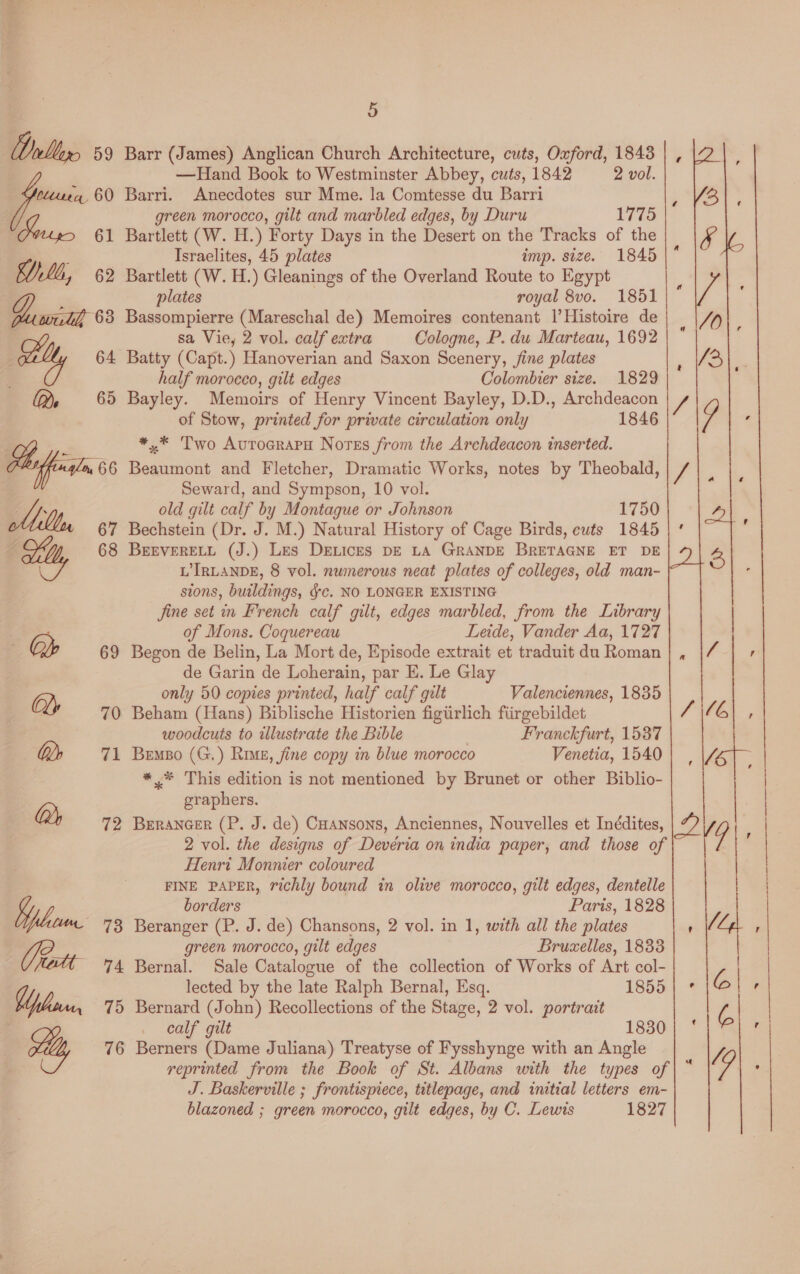 5
59 Barr (James) Anglican Church Architecture, cuts, Oxford, 1843 , 12 ,
—Hand Book to Westminster Abbey, cuts, 1842 2 vol.
60 Barri. Anecdotes sur Mme. la Comtesse du Barri , 13 ,
green morocco, gilt and marbled edges, by Duru 1775
61 Bartlett (W. H.) Forty Days in the Desert on the Tracks of the , 8 6
Israelites, 45 plates imp. size. 1845
62 Bartlett (W. H.) Gleanings of the Overland Route to Egypt , 7 ,
plates royal 8vo. 1851
63 Bassompierre (Mareschal de) Memoires contenant l'Histoire de , 10 ,
sa Vie, 2 vol. calf extra Cologne, P. du Marteau, 1692
Lilly 64 Batty (Capt.) Hanoverian and Saxon Scenery, fine plates , 13 ,
half morocco, gilt edges Colombier size. 1829
Do 65 Bayley. Memoirs of Henry Vincent Bayley, D.D., Archdeacon 1 9 ,
of Stow, printed for private circulation only 1846
*** Two Autograph Notes from the Archdeacon inserted.
66 Beaumont and Fletcher, Dramatic Works, notes by Theobald, 1 , ,
Seward, and Sympson, 10 vol.
old gilt calf by Montague or Johnson 1750
Miller 67 Bechstein (Dr. J. M.) Natural History of Cage Birds, cuts 1845 , 2 ,
Lilly 68 Beeverell (J.) Les Delices de la Grande Bretagne et de 2 8 ,
l'Irlande, 8 vol. numerous neat plates of colleges, old man-
sions, buildings, &c. NO LONGER EXISTING
fine set in French calf gilt, edges marbled, from the Library
of Mons. Coquereau Leide, Vander Aa, 1727
Do 69 Begon de Belin, La Mort de, Episode extrait et traduit du Roman , 1 ,
de Garin de Loherain, par E. Le Glay
only 50 copies printed, half calf gilt Valenciennes, 1835
Do 70 Beham (Hans) Biblische Historien figürlich fürgebildet 1 16 ,
woodcuts to illustrate the Bible Franckfurt, 1537
Do 71 Bembo (G.) Rime, fine copy in blue morocco Venetia, 1540 , 16 ,
*** This edition is not mentioned by Brunet or other Biblio-
graphers.
Do 72 Beranger (P. J. de) Chansons, Anciennes, Nouvelles et Inédites, 2 19 ,
2 vol. the designs of Devéria on india paper, and those of
Henri Monnier coloured
FINE PAPER, richly bound in olive morocco, gilt edges, dentelle
borders Paris, 1828
Upham 73 Beranger (P. J. de) Chansons, 2 vol. in 1, with all the plates , 14 ,
green morocco, gilt edges Bruxelles, 1833
74 Bernal. Sale Catalogue of the collection of Works of Art col-
lected by the late Ralph Bernal, Esq. 1855 , 6 ,
Upham 75 Bernard (John) Recollections of the Stage, 2 vol. portrait
calf gilt 1830 , 6 ,
Lilly 76 Berners (Dame Juliana) Treatyse of Fysshynge with an Angle
reprinted from the Book of St. Albans with the types of , 19 ,
J. Baskerville ; frontispiece, titlepage, and initial letters em-
blazoned ; green morocco, gilt edges, by C. Lewis 1827